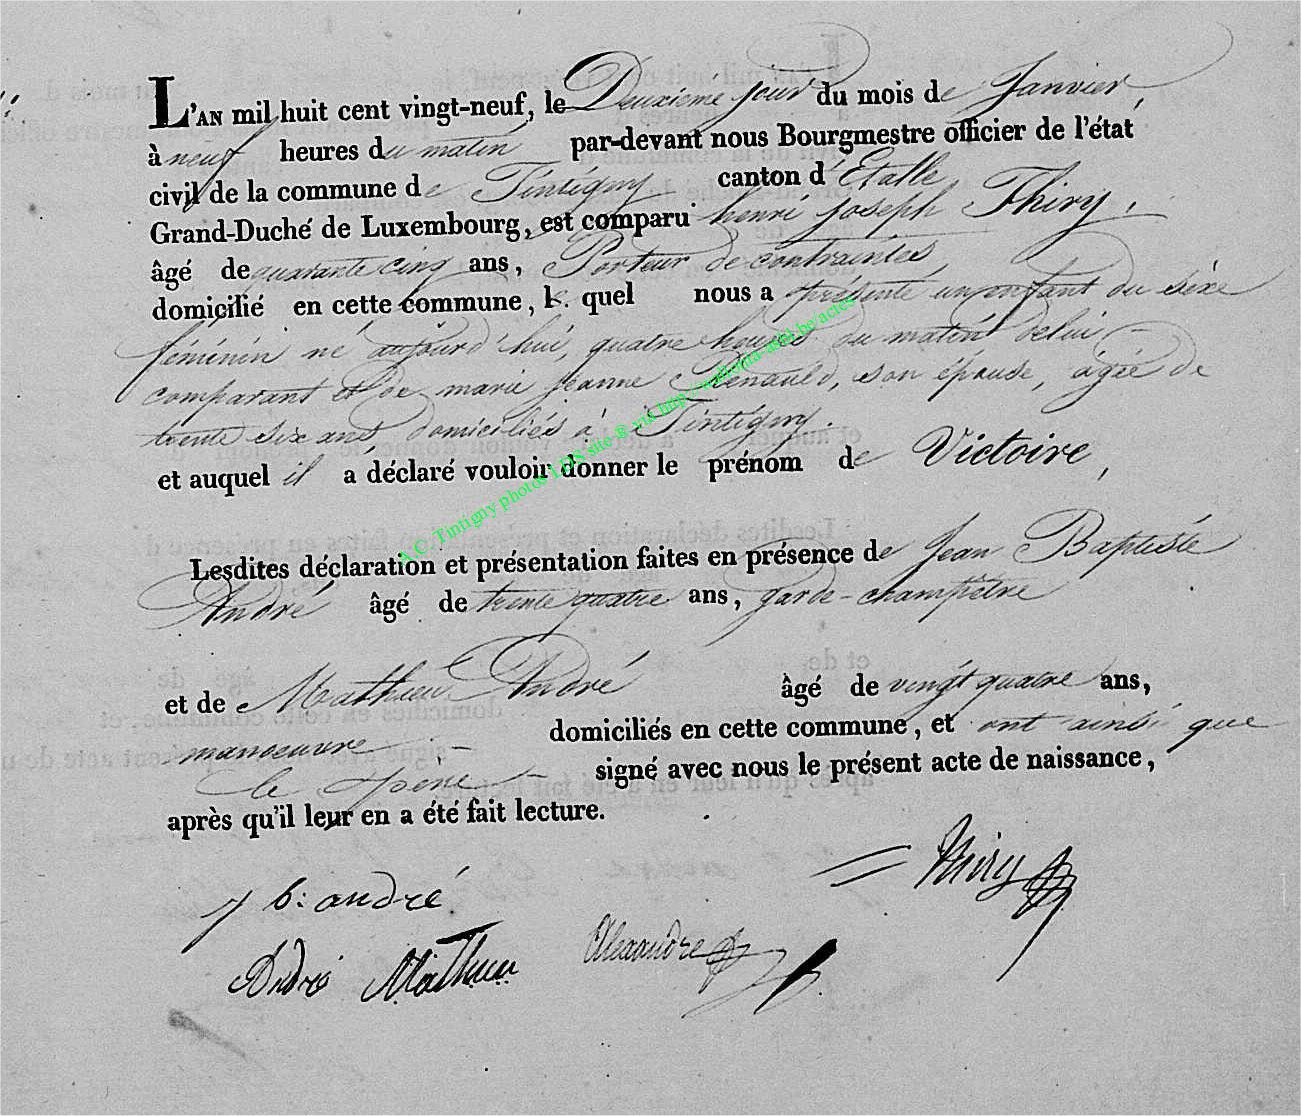 L'AN mil huit cent vingt-neuf, le Deuxième jour du mois de Janvier,
à neuf heures du matin par-devant nous Bourgmestre officier de l'état
civil de la commune de Tintigny canton d'Étalle
Grand-Duché de Luxembourg, est comparu henri joseph Thiry,
âgé de quarante cinq ans, Porteur de contraintes
domicilié en cette commune, le quel nous a présenté un enfant du sèxe
féminin né aujourd'hui, quatre heures du matin de lui
comparant et de marie jeanne Renauld, son épouse, âgée de
trente six ans domiciliés à Tintigny.
et auquel il a déclaré vouloir donner le prénom de Victoire,
Lesdites déclaration et présentation faites en présence de Jean Baptiste
André âgé de trente quatre ans, garde-champêtre
et de Mathieu André âgé de vingt quatre ans,
manoeuvre - domiciliés en cette commune, et ont ainsi que
le père - signé avec nous le présent acte de naissance,
après qu'il leur en a été fait lecture.
Thiry
j b: andré
André Mathieu
Alexandre
A.C. Tintigny photos LDS site ® via http://wallonia-asbl.be/actes